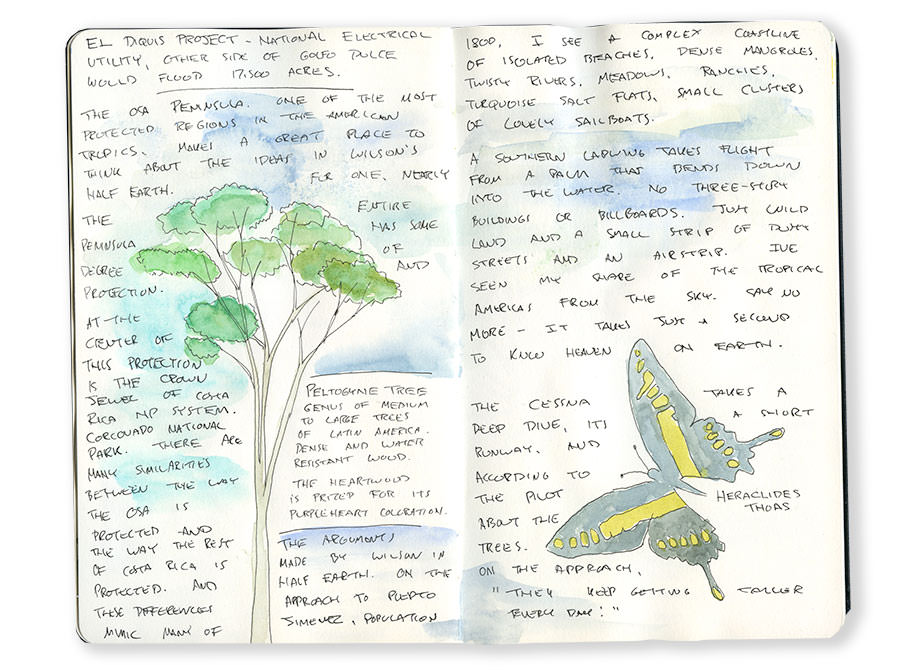 EL DIQUIS PROJECT - NATIONAL ELECTRICAL
UTILITY, OTHER SIDE OF GOLFO DULCE
WOULD FLOOD 17,500 ACRES.
THE OSA PENINSULA. ONE OF THE MOST
PROTECTED REGIONS IN THE AMERICAN
TROPICS. MAKES A GREAT PLACE TO
THINK ABOUT THE IDEAS IN WILSON'S
HALF EARTH. FOR ONE, NEARLY
THE ENTIRE
PENINSULA HAS SOME
DEGREE OF
PROTECTION. AND
AT THE
CENTER OF
THIS PROTECTION
IS THE CROWN
JEWEL OF COSTA
RICA NP SYSTEM.
CORCOVADO NATIONAL
PARK. THERE ARE
MANY SIMILARITIES
BETWEEN THE WAY
THE OSA IS
PROTECTED AND
THE WAY THE REST
OF COSTA RICA IS
PROTECTED. AND
THESE DIFFERENCES
MIMIC MANY OF
PELTOGYNE TREE
GENUS OF MEDIUM
TO LARGE TREES
OF LATIN AMERICA.
DENSE AND WATER
RESISTANT WOOD.
THE HEARTWOOD
IS PRIZED FOR ITS
PURPLEHEART COLORATION.
THE ARGUMENTS
MADE BY WILSON IN
HALF EARTH. ON THE
APPROACH TO PUERTO
JIMENEZ, POPULATION
1800, I SEE A COMPLEX COASTLINE
OF ISOLATED BEACHES, DENSE MANGROVES,
TWISTY RIVERS, MEADOWS, RANCHES,
TURQUOISE SALT FLATS, SMALL CLUSTERS
OF LOVELY SAILBOATS.
A SOUTHERN LAPWING TAKES FLIGHT
FROM A PALM THAT BENDS DOWN
INTO THE WATER. NO THREE-STORY
BUILDINGS OR BILLBOARDS. JUST WILD
LAND AND A SMALL STRIP OF DUSTY
STREETS AND AN AIRSTRIP. I'VE
SEEN MY SHARE OF THE TROPICAL
AMERICAS FROM THE SKY. SAY NO
MORE - IT TAKES JUST A SECOND
TO KNOW HEAVEN ON EARTH.
THE CESSNA TAKES A
DEEP DIVE, ITS A SHORT
RUNWAY, AND
ACCORDING TO
THE PILOT
ABOUT THE
TREES.
ON THE APPROACH,
"THEY KEEP GETTING TALLER
EVERY DAY!"
HERACLIDES
THOAS